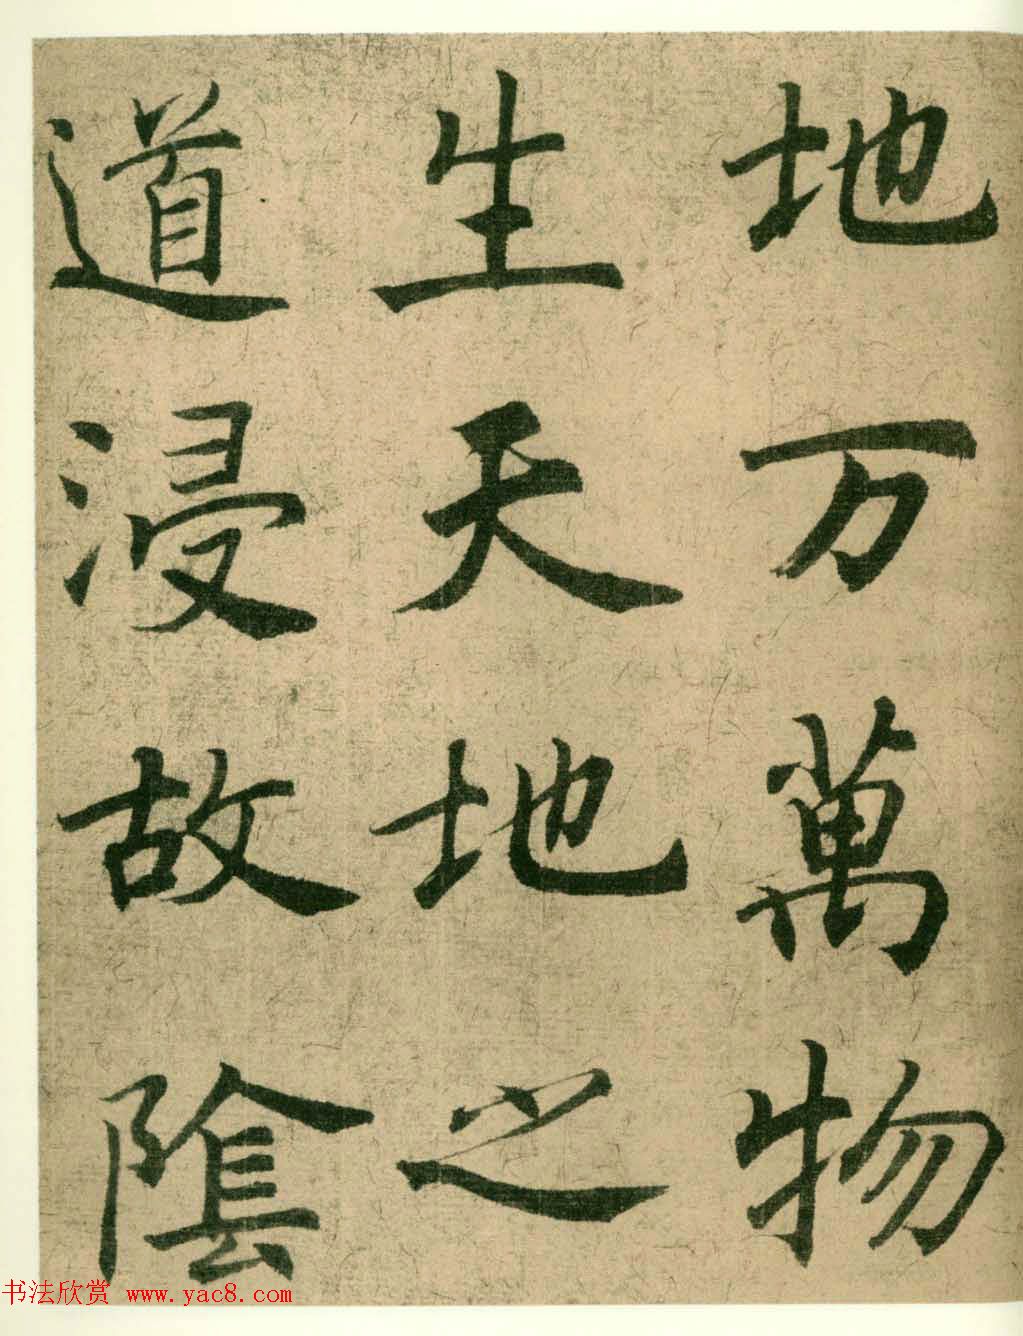 地万萬物
生天地之
道浸故陰
书法欣赏 www.yac8.com